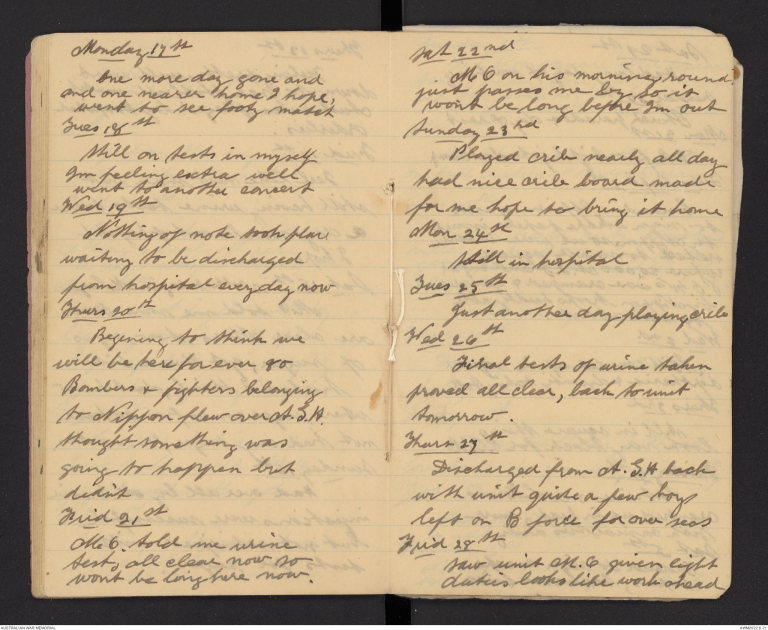 Monday 17st
One more day gone and
and one nearer home I hope,
went to see footy match
Tues 18st
Still on tests in myself
Im feeling extra well
went to another concert
Wed 19st
Nothing of note took place
waiting to be discharged
from hospital everyday now
Thurs 20st
Begening to think we
will be here for ever 80
Bombers & fighters belonging
to Nippon flew over A.G.H.
thought something was
going to happen but
didnt
Frid 21st
M.O. told me urine
tests all clear now so
wont be long here now.
Sat 22nd
M O on his morning round
just passes me by so it
wont be long before Im out
Sunday 23rd
Played crib nearly all day
had nice crib board made
for me hope to bring it home
Mon 24st
Still in hospital
Tues 25st
Just another day playing crib
Wed 26st
Final tests of urine taken
proved all clear, back to unit
tomorrow.
Thurs 27st
Discharged from A.G.H back
with unit quite a few boys
left on B force for over seas
Frid 28st
Saw unit M.O given light
duties looks like work ahead
AUSTRALIAN WAR MEMORIAL